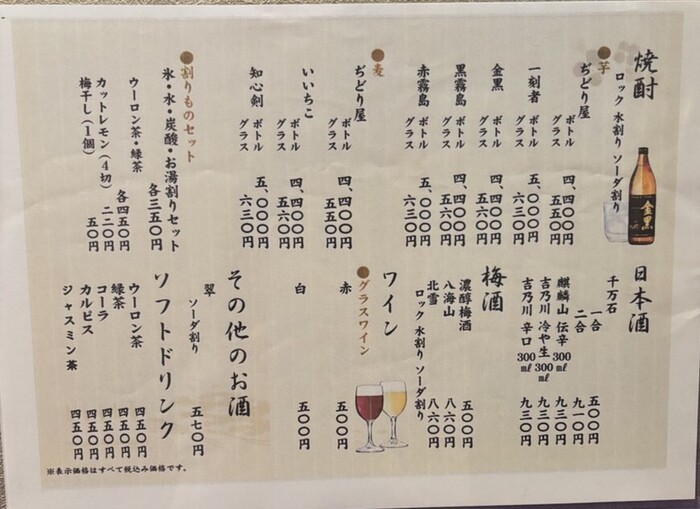 焼酎
ロック 水割り ソーダ割り
●芋
ぢどり屋
ボトル 四、四〇〇円
グラス 五五〇円
一刻者
ボトル 五、〇〇〇円
グラス 六三〇円
金黒
ボトル 四、四〇〇円
グラス 五六〇円
黒霧島
ボトル 四、四〇〇円
グラス 五六〇円
赤霧島
ボトル 五、〇〇〇円
グラス 六三〇円
●麦
ぢどり屋
ボトル 四、四〇〇円
グラス 五五〇円
いいちこ
ボトル 四、四〇〇円
グラス 五六〇円
知心剣
ボトル 五、〇〇〇円
グラス 六三〇円
●割りものセット
氷・水・炭酸・お湯割りセット 各三五〇円
ウーロン茶・緑茶 各四五〇円
カットレモン(4切) 二二〇円
梅干し(1個) 五〇円
金黒
日本酒
千万石
一合 五〇〇円
二合 九一〇円
麒麟山 伝辛 300㎖ 九三〇円
吉乃川 冷や生 300㎖ 九三〇円
吉乃川 辛口 300㎖ 九三〇円
梅酒
濃醇梅酒 五〇〇円
八海山 八六〇円
北雪 八六〇円
ロック 水割り ソーダ割り
ワイン
●グラスワイン
赤 五〇〇円
白 五〇〇円
その他のお酒
翠
ソーダ割り 五七〇円
ソフトドリンク
ウーロン茶 四五〇円
緑茶 四五〇円
コーラ 四五〇円
カルピス 四五〇円
ジャスミン茶 四五〇円
※表示価格はすべて税込み価格です。